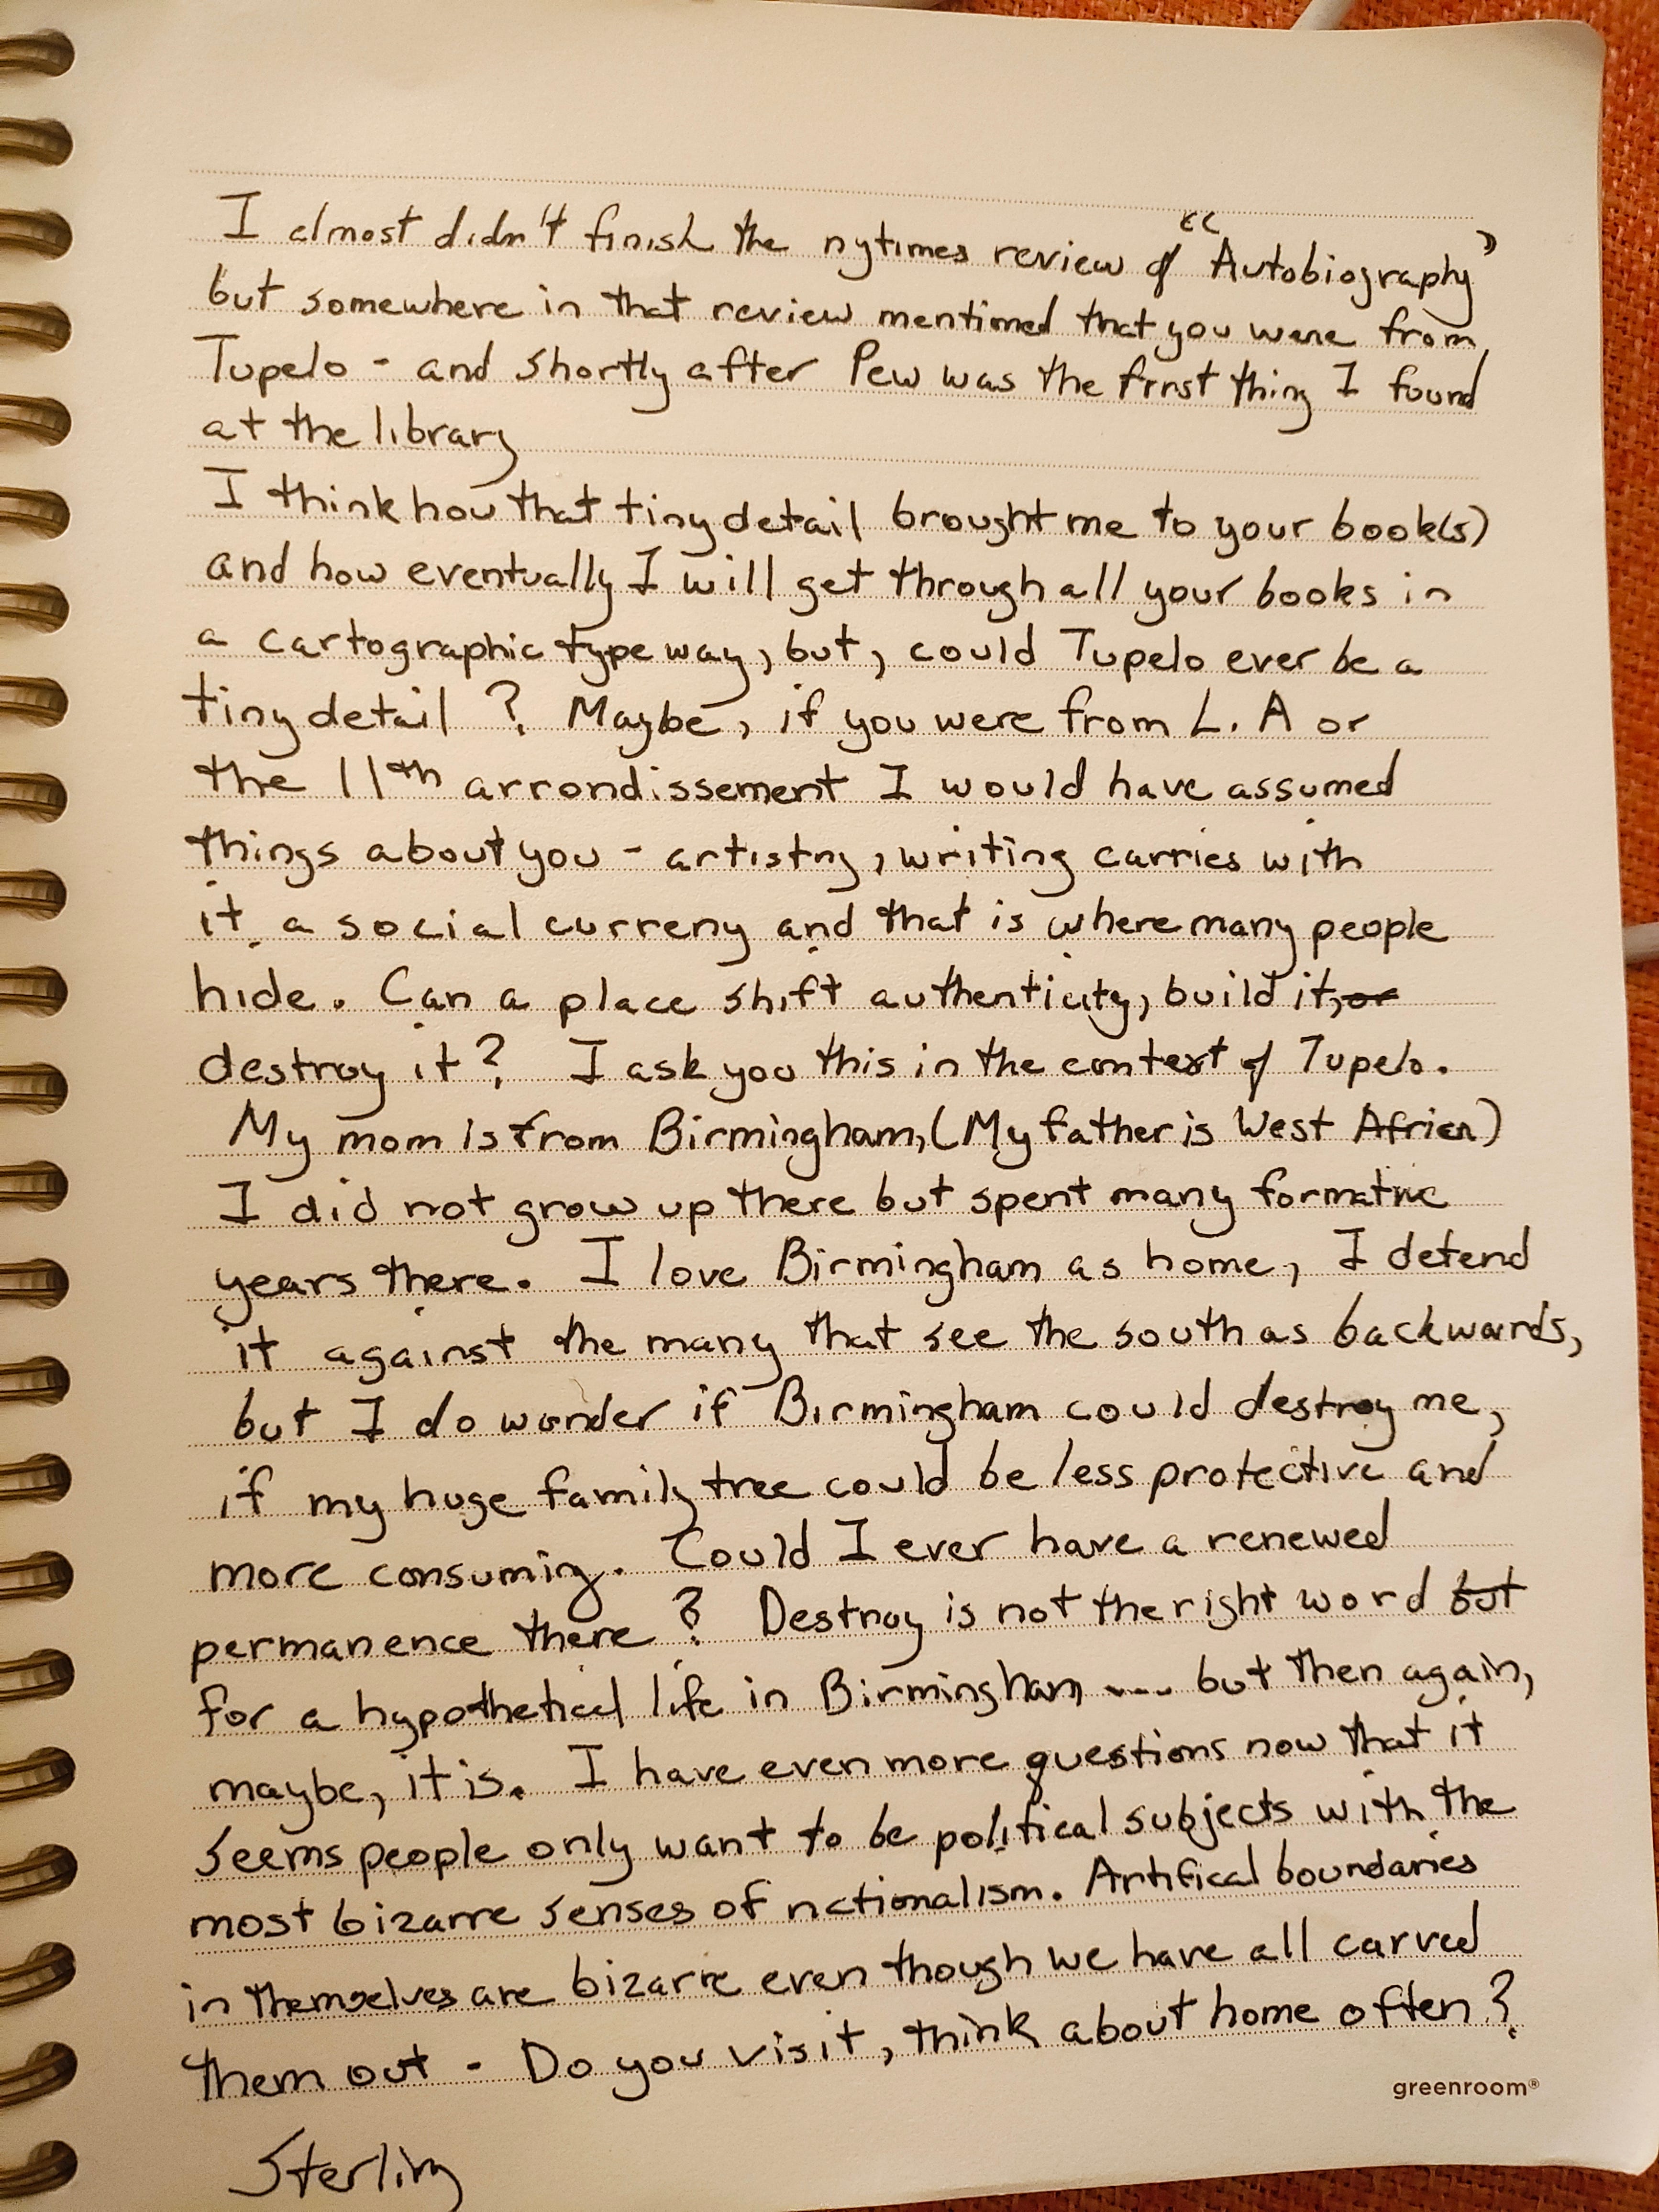 I almost didn't finish the nytimes review of "Autobiography"
but somewhere in that review mentioned that you were from
Tupelo - and shortly after Pew was the first thing I found
at the library
I think how that tiny detail brought me to your book(s)
and how eventually I will get through all your books in
a cartographic type way, but, could Tupelo ever be a
tiny detail ? Maybe, if you were from L.A or
the 11th arrondissement I would have assumed
things about you - artistry, writing carries with
it a social curreny and that is where many people
hide. Can a place shift authenticity, build it, or
destroy it? I ask you this in the context of Tupelo.
My mom is from Birmingham, (My father is West African)
I did not grow up there but spent many formative
years there. I love Birmingham as home, I defend
it against the many that see the south as backwards,
but I do wonder if Birmingham could destroy me,
if my huge family tree could be less protective and
more consuming. Could I ever have a renewed
permanence there ? Destroy is not the right word but
for a hypothetical life in Birmingham .... but then again,
maybe, it is. I have even more questions now that it
seems people only want to be political subjects with the
most bizarre senses of nationalism. Artifical boundaries
in themselves are bizarre even though we have all carved
them out - Do you visit, think about home often?
greenroom®
Sterling